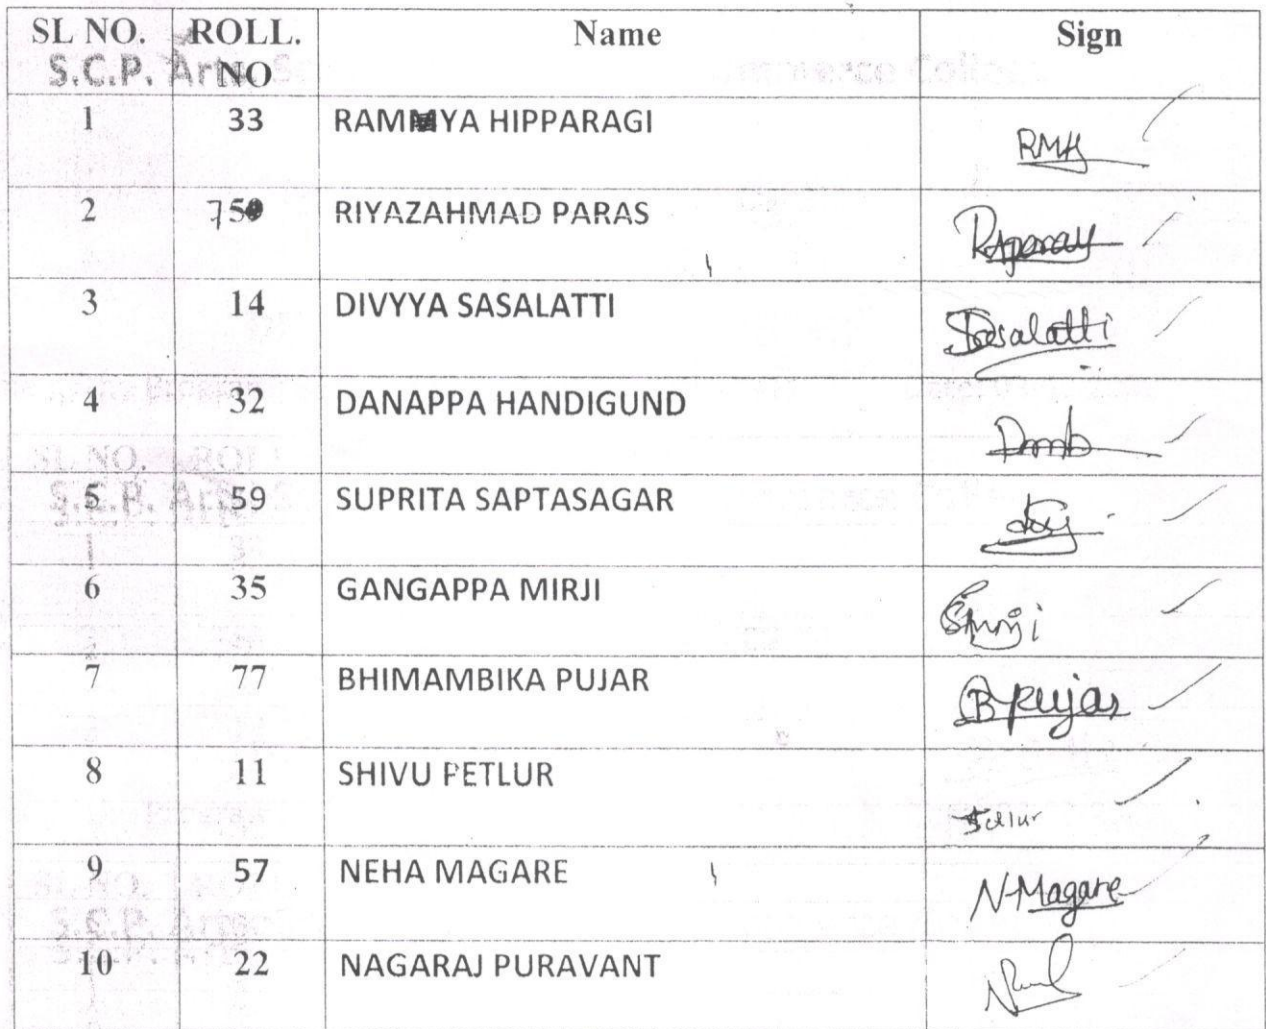 SL NO. ROLL. NO Name Sign
1 33 RAMMYA HIPPARAGI RMH
2 75 RIYAZAHMAD PARAS
3 14 DIVYYA SASALATTI Sasalatti
4 32 DANAPPA HANDIGUND
5 59 SUPRITA SAPTASAGAR
6 35 GANGAPPA MIRJI
7 77 BHIMAMBIKA PUJAR B Pujar
8 11 SHIVU PETLUR
9 57 NEHA MAGARE N Magare
10 22 NAGARAJ PURAVANT